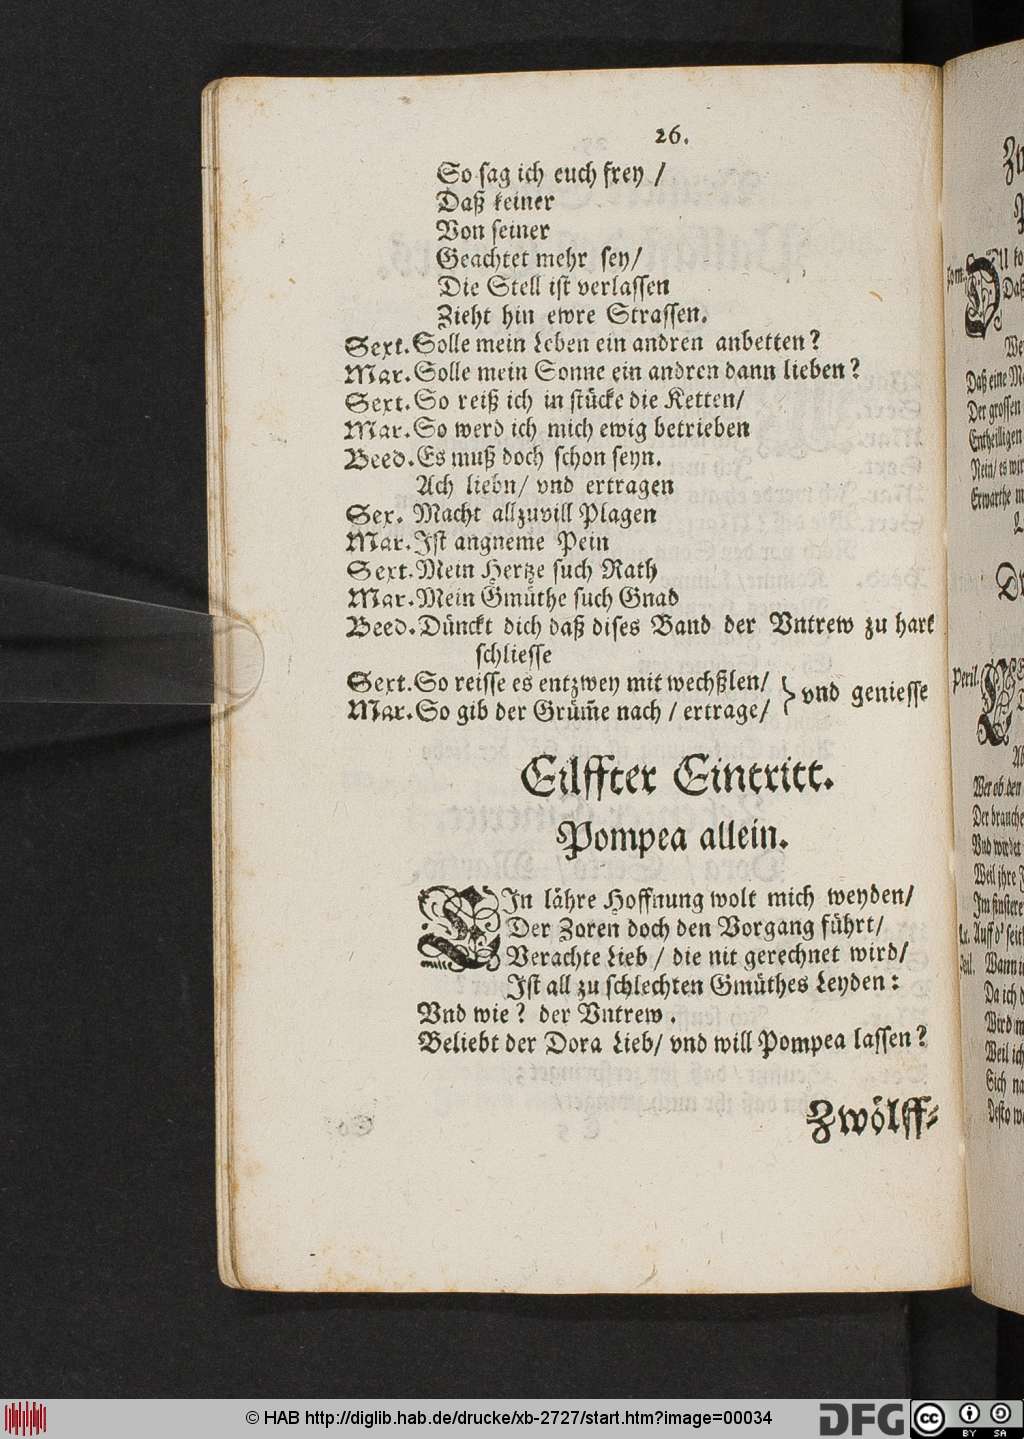 26.
So sag ich euch frey /
Daß keiner
Von seiner
Geachtet mehr sey/
Die Stell ist verlassen
Zieht hin ewre Strassen.
Sext. Solle mein Leben ein andren anbetten?
Mar. Solle mein Sonne ein andren dann lieben?
Sext. So reiß ich in stücke die Ketten/
Mar. So werd ich mich ewig betrieben
Beed. Es muß doch schon seyn.
Ach liebn/ vnd ertragen
Sex. Macht allzuvill Plagen
Mar. Ist angneme Pein
Sext. Mein Hertze such Rath
Mar. Mein Gmüthe such Gnad
Beed. Dünckt dich daß dises Band der Vntrew zu hart
schliesse
Sext. So reisse es entzwey mit wechßlen/
Mar. So gib der Grüm̄e nach / ertrage/ } vnd geniesse
Eilffter Eintritt.
Pompea allein.
EIn lähre Hoffnung wolt mich weyden/
Der Zoren doch den Vorgang führt/
Verachte Lieb / die nit gerechnet wird/
Ist all zu schlechten Gmüthes Leyden:
Vnd wie? der Vntrew.
Beliebt der Dora Lieb/ vnd will Pompea lassen?
Zwölff-
Daß eine
Der grossen
Entheiligen
Nein/ es wir
Erwarthe
Peril.
Wer ob den
Der brauche
Vnd würdet
Weil jhre
Im finstere
Wann
Da ich
Wird
Weil ich
Sich
Desto
© HAB http://diglib.hab.de/drucke/xb-2727/start.htm?image=00034
DFG
cc
BY SA